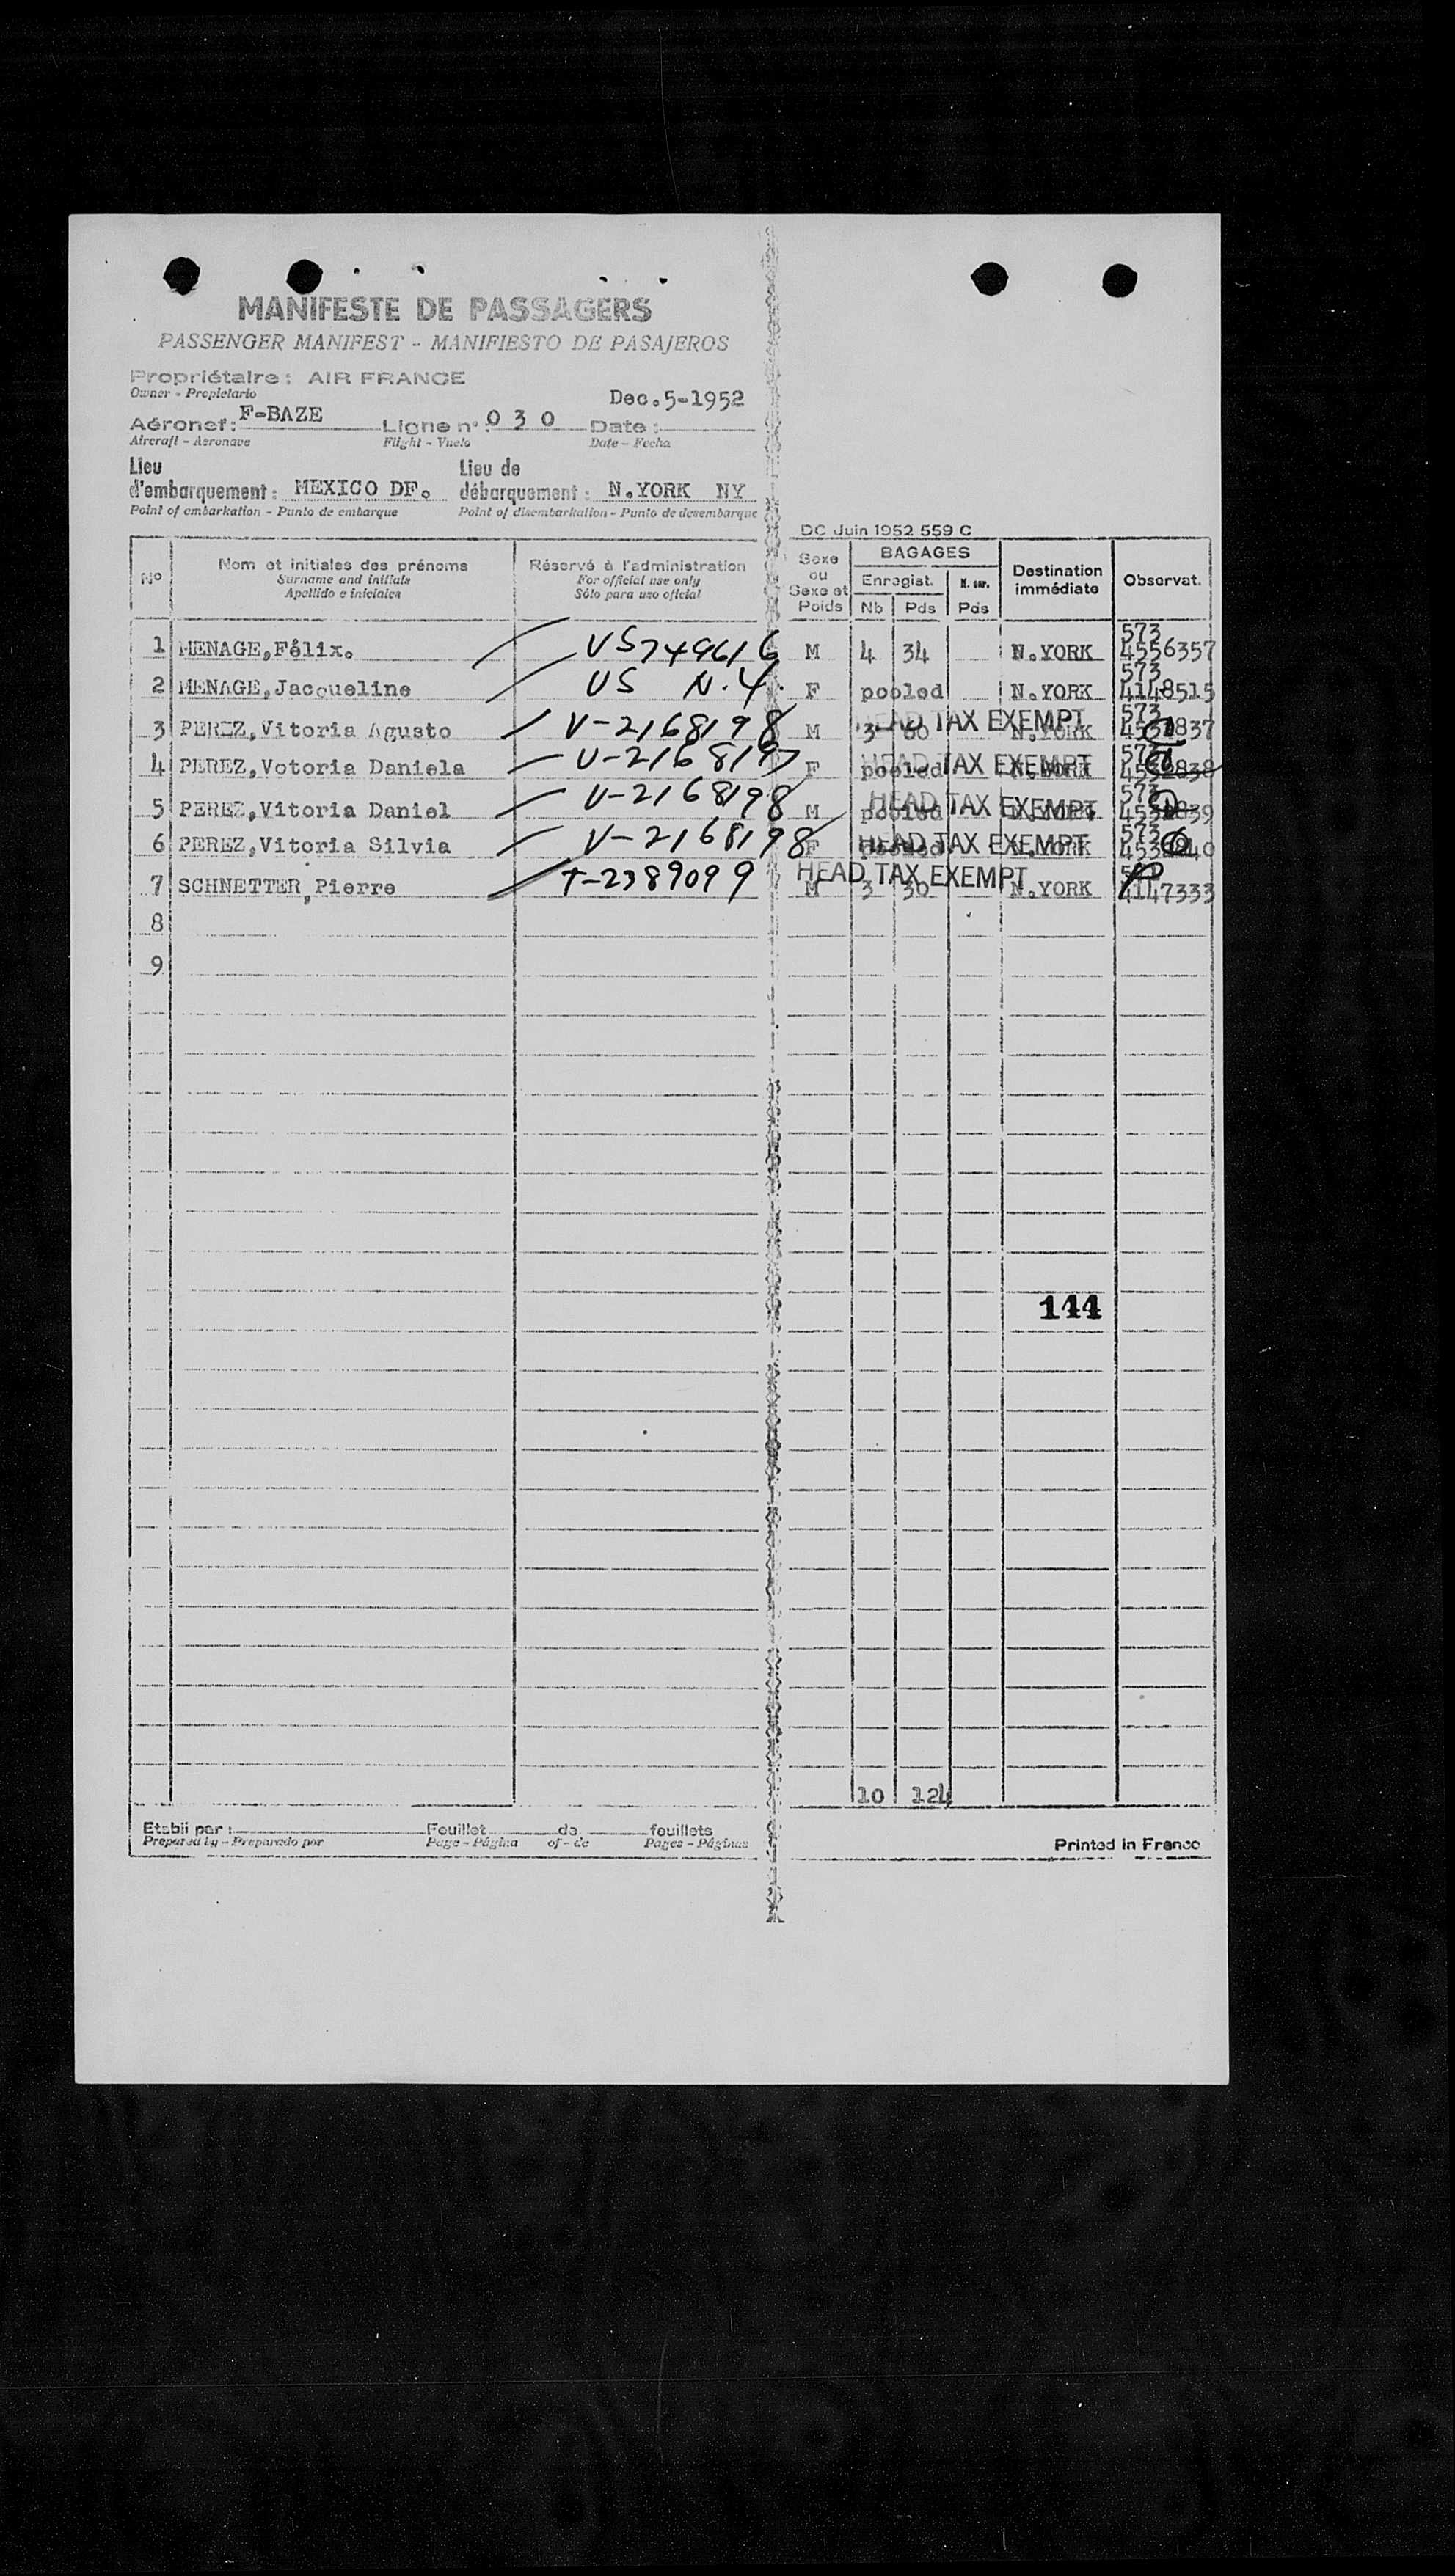 MANIFESTE DE PASSAGERS
PASSENGER MANIFEST - MANIFIESTO DE PASAJEROS
Propriétaire : AIR FRANCE
Owner - Propietario
Dec.5-1952
Aéronef: F-BAZE Ligne n° : 0 3 0 Date :
Aircraft - Aeronave Flight - Vuelo Date - Fecha
Lieu d'embarquement : MEXICO DF. Lieu de débarquement : N.YORK NY
Point of embarkation - Punto de embarque Point of disembarkation - Punto de desembarque
DC Juin 1952 559 C
No Nom et initiales des prénoms Réservé à l'administration Sexe ou Sexe et Poids BAGAGES Destination immédiate Observat.
Surname and initials For official use only Enregist.
Apellido e iniciales Sólo para uso oficial Nb Pds Pds
1 MENAGE,Félix. US749616 M 4 34 N.YORK 573 4556357
2 MENAGE,Jacqueline US N.Y. F pooled N.YORK 573 4148515
3 PEREZ,Vitoria Agusto V-2168198 M 3 60 HEAD TAX EXEMPT N.YORK 573
4 PEREZ,Votoria Daniela V-2168197 F pooled HEAD TAX EXEMPT N.YORK
5 PEREZ,Vitoria Daniel V-2168198 M pooled HEAD TAX EXEMPT N.YORK
6 PEREZ,Vitoria Silvia V-2168198 F pooled HEAD TAX EXEMPT N.YORK 573
7 SCHNETTER,Pierre T-2389099 M 3 30 HEAD TAX EXEMPT N.YORK 4147333
8
9
144
10 124
Etabli par : Feuillet de feuillets
Prepared by - Preparado por Page - Página of - de Pages - Páginas
Printed in France